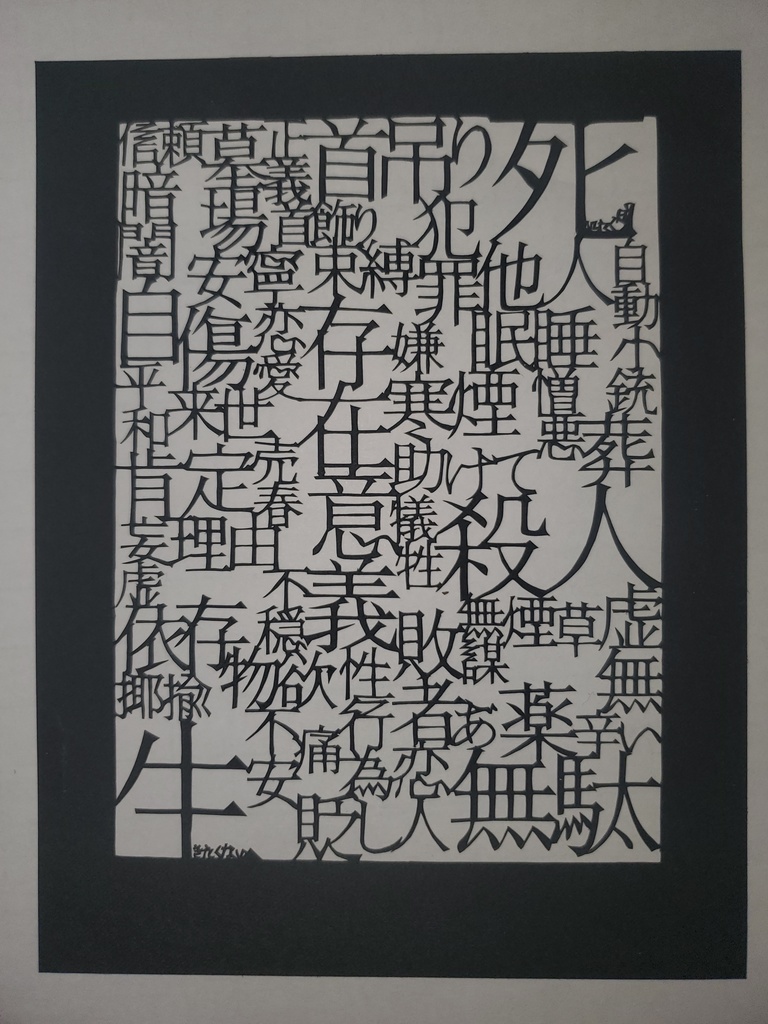 信頼
墓場
正義
首吊り
死
暗闇
首飾り
犯罪
他人
自動小銃
安寧
束縛
自傷
恋愛
存在意義
嫌
睡眠
憎悪
平和
来世
寒
煙
葬
肯定
売春
助けて
殺人
妄
虚
理由
犠牲
不穏
依存
物欲
性行為
敗者
無謀
無煙
草
虚無
揶揄
不安
痛
恋人
あ
薬
辛い
生
きたくない
貶し
無駄